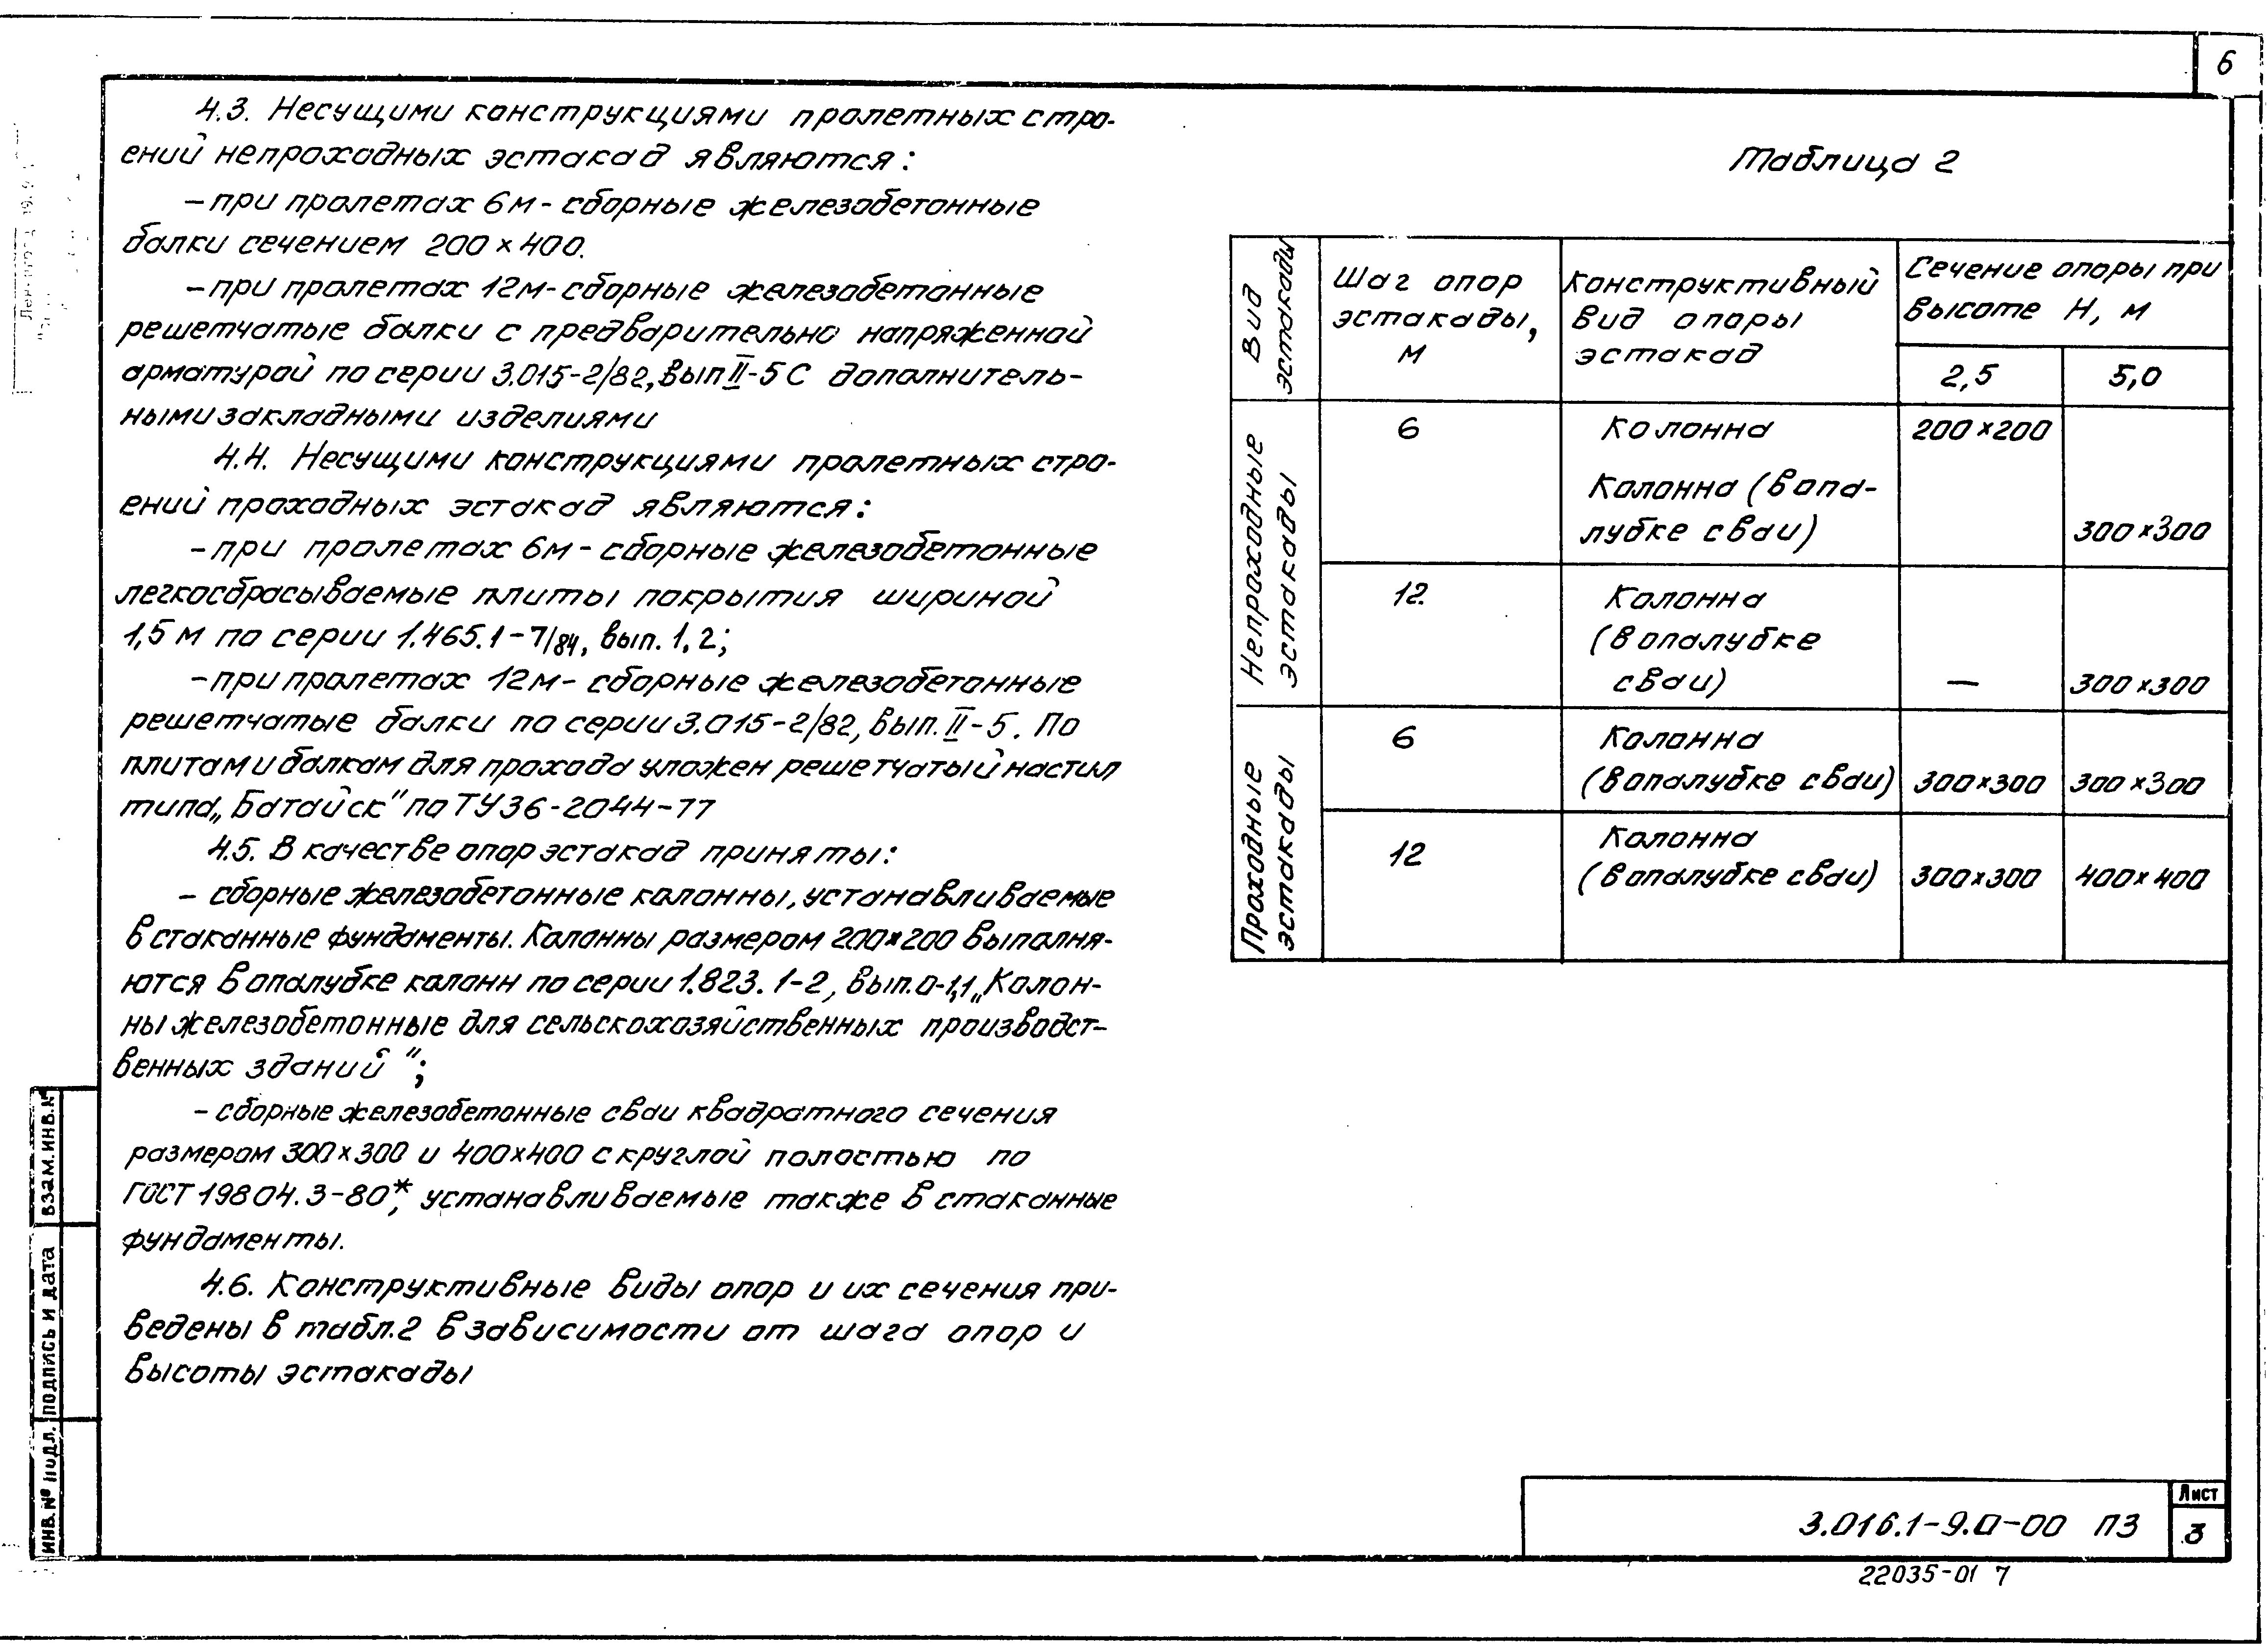 6
4.3. Несущими конструкциями пролетных стро-
ений непроходных эстакад являются:
– при пролетах 6м - сборные железобетонные
балки сечением 200 × 400.
– при пролетах 12м - сборные железобетонные
решетчатые балки с предварительно напряженной
арматурой по серии 3.015-2/82, вып II-5 С дополнитель-
ными закладными изделиями
4.4. Несущими конструкциями пролетных стро-
ений проходных эстакад являются:
– при пролетах 6м - сборные железобетонные
легкосбрасываемые плиты покрытия шириной
1,5 м по серии 1.465.1-7/84, вып. 1, 2;
– при пролетах 12м - сборные железобетонные
решетчатые балки по серии 3.015-2/82, вып. II-5. По
плитам и балкам для прохода уложен решетчатый настил
типа „Батайск" по ТУ36-2044-77
4.5. В качестве опор эстакад приняты:
– сборные железобетонные колонны, устанавливаемые
в стаканные фундаменты. Колонны размером 200×200 выполня-
ются в опалубке колонн по серии 1.823.1-2, вып.0-1,1 „Колон-
ны железобетонные для сельскохозяйственных производст-
венных зданий";
– сборные железобетонные сваи квадратного сечения
размером 300×300 и 400×400 с круглой полостью по
ГОСТ 19804.3-80*, устанавливаемые также в стаканные
фундаменты.
4.6. Конструктивные виды опор и их сечения при-
ведены в табл.2 в зависимости от шага опор и
высоты эстакады
Таблица 2
Вид
эстакады
Шаг опор
эстакады,
м
Конструктивный
вид опоры
эстакад
Сечение опоры при
высоте Н, м
2,5 5,0
Непроходные
эстакады
6 Колонна 200×200
Колонна (в опа-
лубке сваи) 300×300
12. Колонна
(в опалубке
сваи) — 300×300
Проходные
эстакады
6 Колонна
(в опалубке сваи) 300×300 300×300
12 Колонна
(в опалубке сваи) 300×300 400×400
ИНВ. № подл. ПОДПИСЬ И ДАТА ВЗАМ. ИНВ. №
3.016.1-9.0-00 ПЗ
Лист
3
22035-01 7